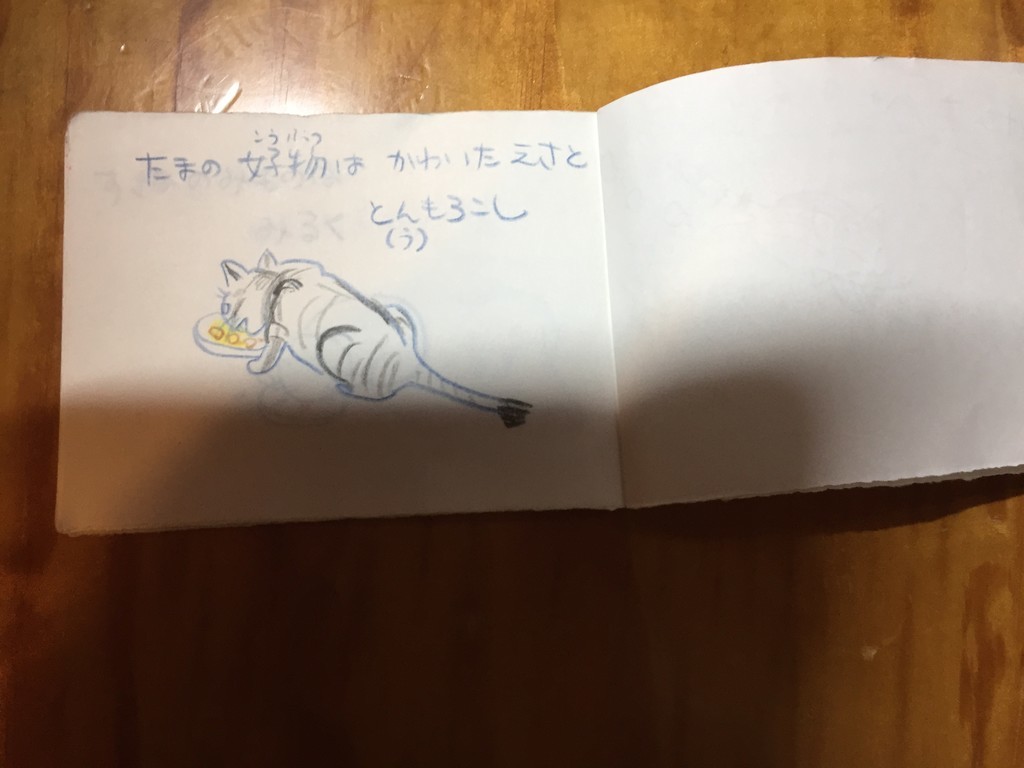 こうぶつ
たまの 好物は かわいた えさと
とんもろこし
(う)